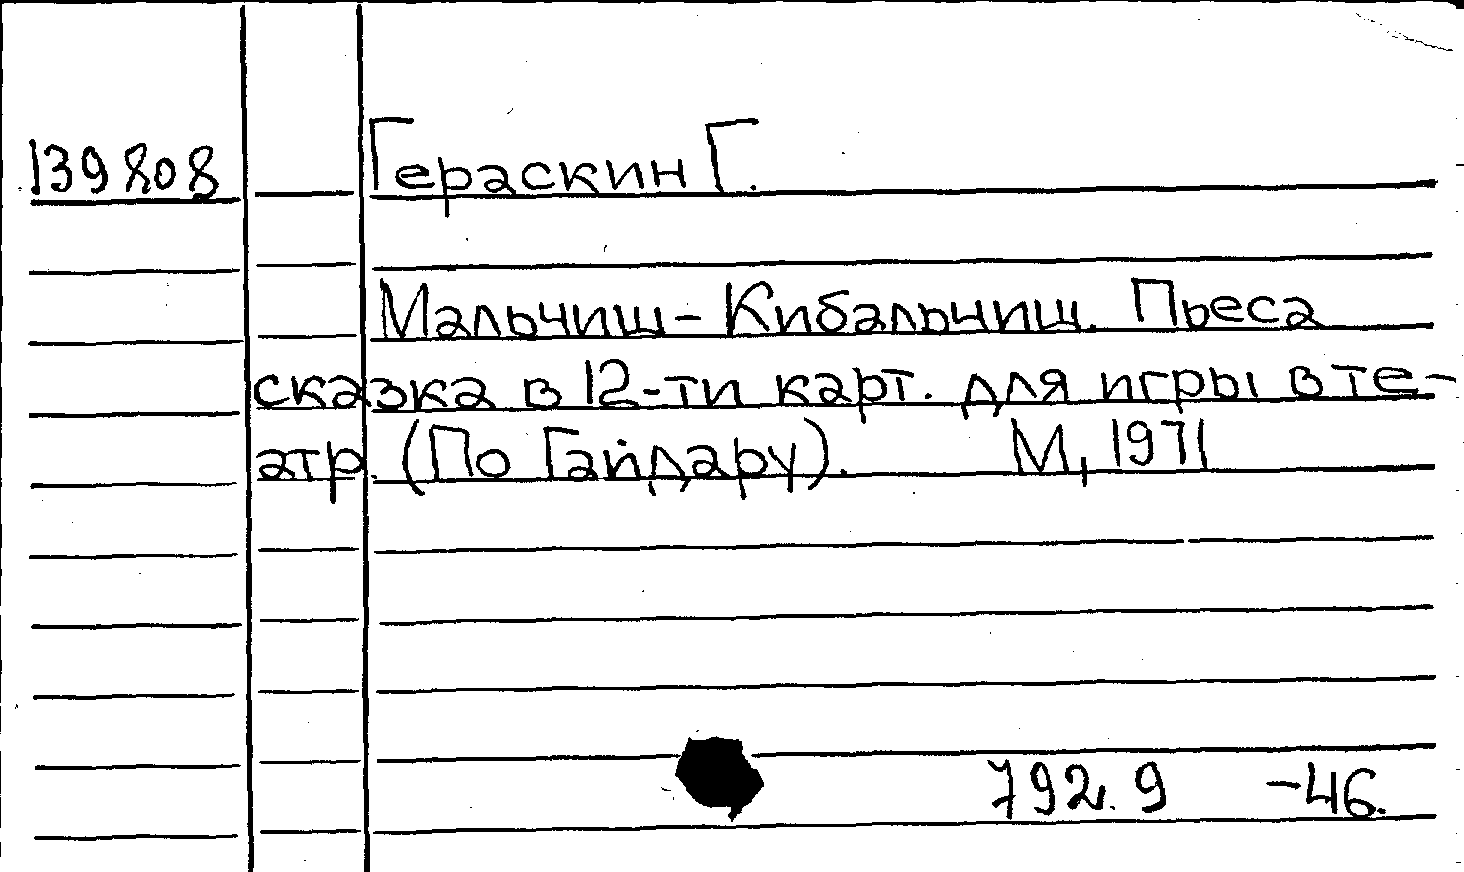 139808 Гераскин Г.
Мальчиш-Кибальчиш. Пьеса
сказка в 12-ти карт. для игры в те-
атр. (По Гайдару). М, 1971
792.9 -46.